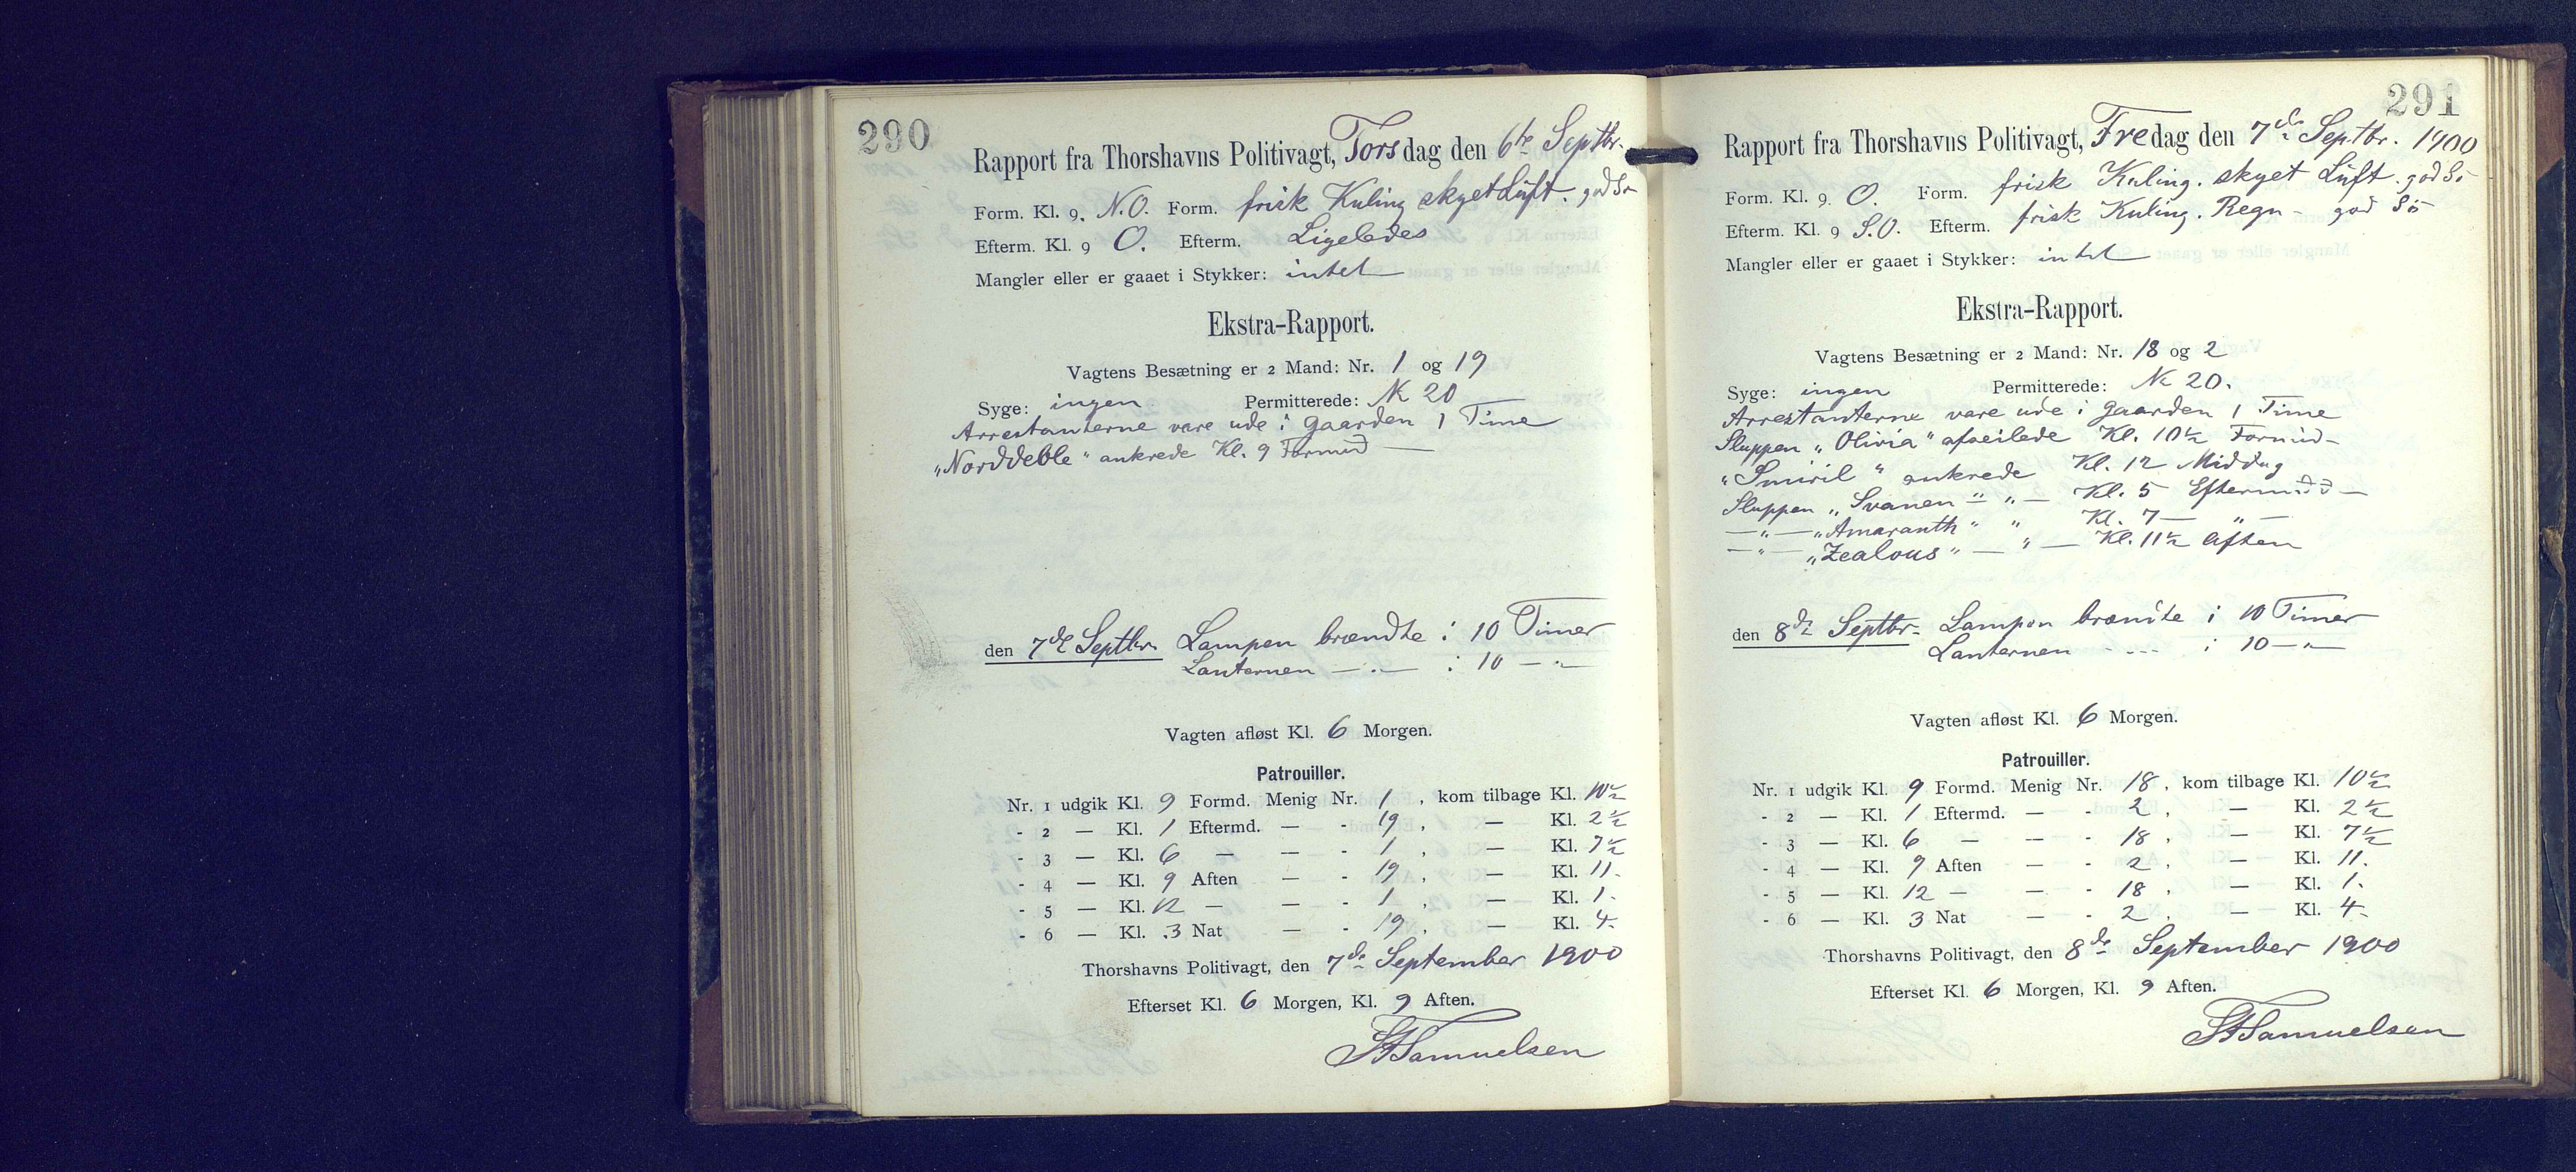 290
Rapport fra Thorshavns Politivagt, Torsdag den 6te Septbr.
Form. Kl. 9. N.O. Form. frisk Kuling skyet Luft. god Sø
Efterm. Kl. 9 O. Efterm. Ligeledes
Mangler eller er gaaet i Stykker: intet
Ekstra-Rapport.
Vagtens Besætning er 2 Mand: Nr. 1 og 19
Syge: ingen Permitterede: N 20
Arrestanterne vare ude i Gaarden 1 Time
„Norddeble“ ankrede Kl. 9 Formid —
den 7de Septbr. Lampen brændte i 10 Timer
Lanternen — „ — i 10 — „ —
Vagten afløst Kl. 6 Morgen.
Patrouiller.
Nr. 1 udgik Kl. 9 Formd. Menig Nr. 1, kom tilbage Kl. 10½
- 2 — Kl. 1 Eftermd. — - 19, — Kl. 2½
- 3 — Kl. 6 — — - 1, — Kl. 7½
- 4 — Kl. 9 Aften — - 19, — Kl. 11.
- 5 — Kl. 12 — — - 1, — Kl. 1.
- 6 — Kl. 3 Nat — - 19, — Kl. 4.
Thorshavns Politivagt, den 7de September 1900
Efterset Kl. 6 Morgen, Kl. 9 Aften.
Samuelsen
291
Rapport fra Thorshavns Politivagt, Fredag den 7de Septbr. 1900
Form. Kl. 9. O. Form. frisk Kuling. skyet Luft. god Sø
Efterm. Kl. 9 S.O. Efterm. frisk Kuling. Regn - god Sø
Mangler eller er gaaet i Stykker: intet
Ekstra-Rapport.
Vagtens Besætning er 2 Mand: Nr. 18 og 2
Syge: ingen Permitterede: N 20.
Arrestanterne vare ude i Gaarden 1 Time
Sluppen „Olivia“ afseilede Kl. 10½ Formid-
„Smiril“ ankrede Kl. 12 Middag
Sluppen „Svanen“ — „ — Kl. 5 Eftermidd —
— „ — „Amaranth“ „ Kl. 7 — „ —
— „ — „Zealous“ — „ — Kl. 11½ Aften
den 8de Septbr. Lampen brændte i 10 Timer
Lanternen - - - i 10 — „ —
Vagten afløst Kl. 6 Morgen.
Patrouiller.
Nr. 1 udgik Kl. 9 Formd. Menig Nr. 18, kom tilbage Kl. 10½
- 2 — Kl. 1 Eftermd. — - 2, — Kl. 2½
- 3 — Kl. 6 — — - 18, — Kl. 7½
- 4 — Kl. 9 Aften — - 2, — Kl. 11.
- 5 — Kl. 12 — — - 18, — Kl. 1.
- 6 — Kl. 3 Nat — - 2, — Kl. 4.
Thorshavns Politivagt, den 8de September 1900
Efterset Kl. 6 Morgen, Kl. 9 Aften.
Samuelsen